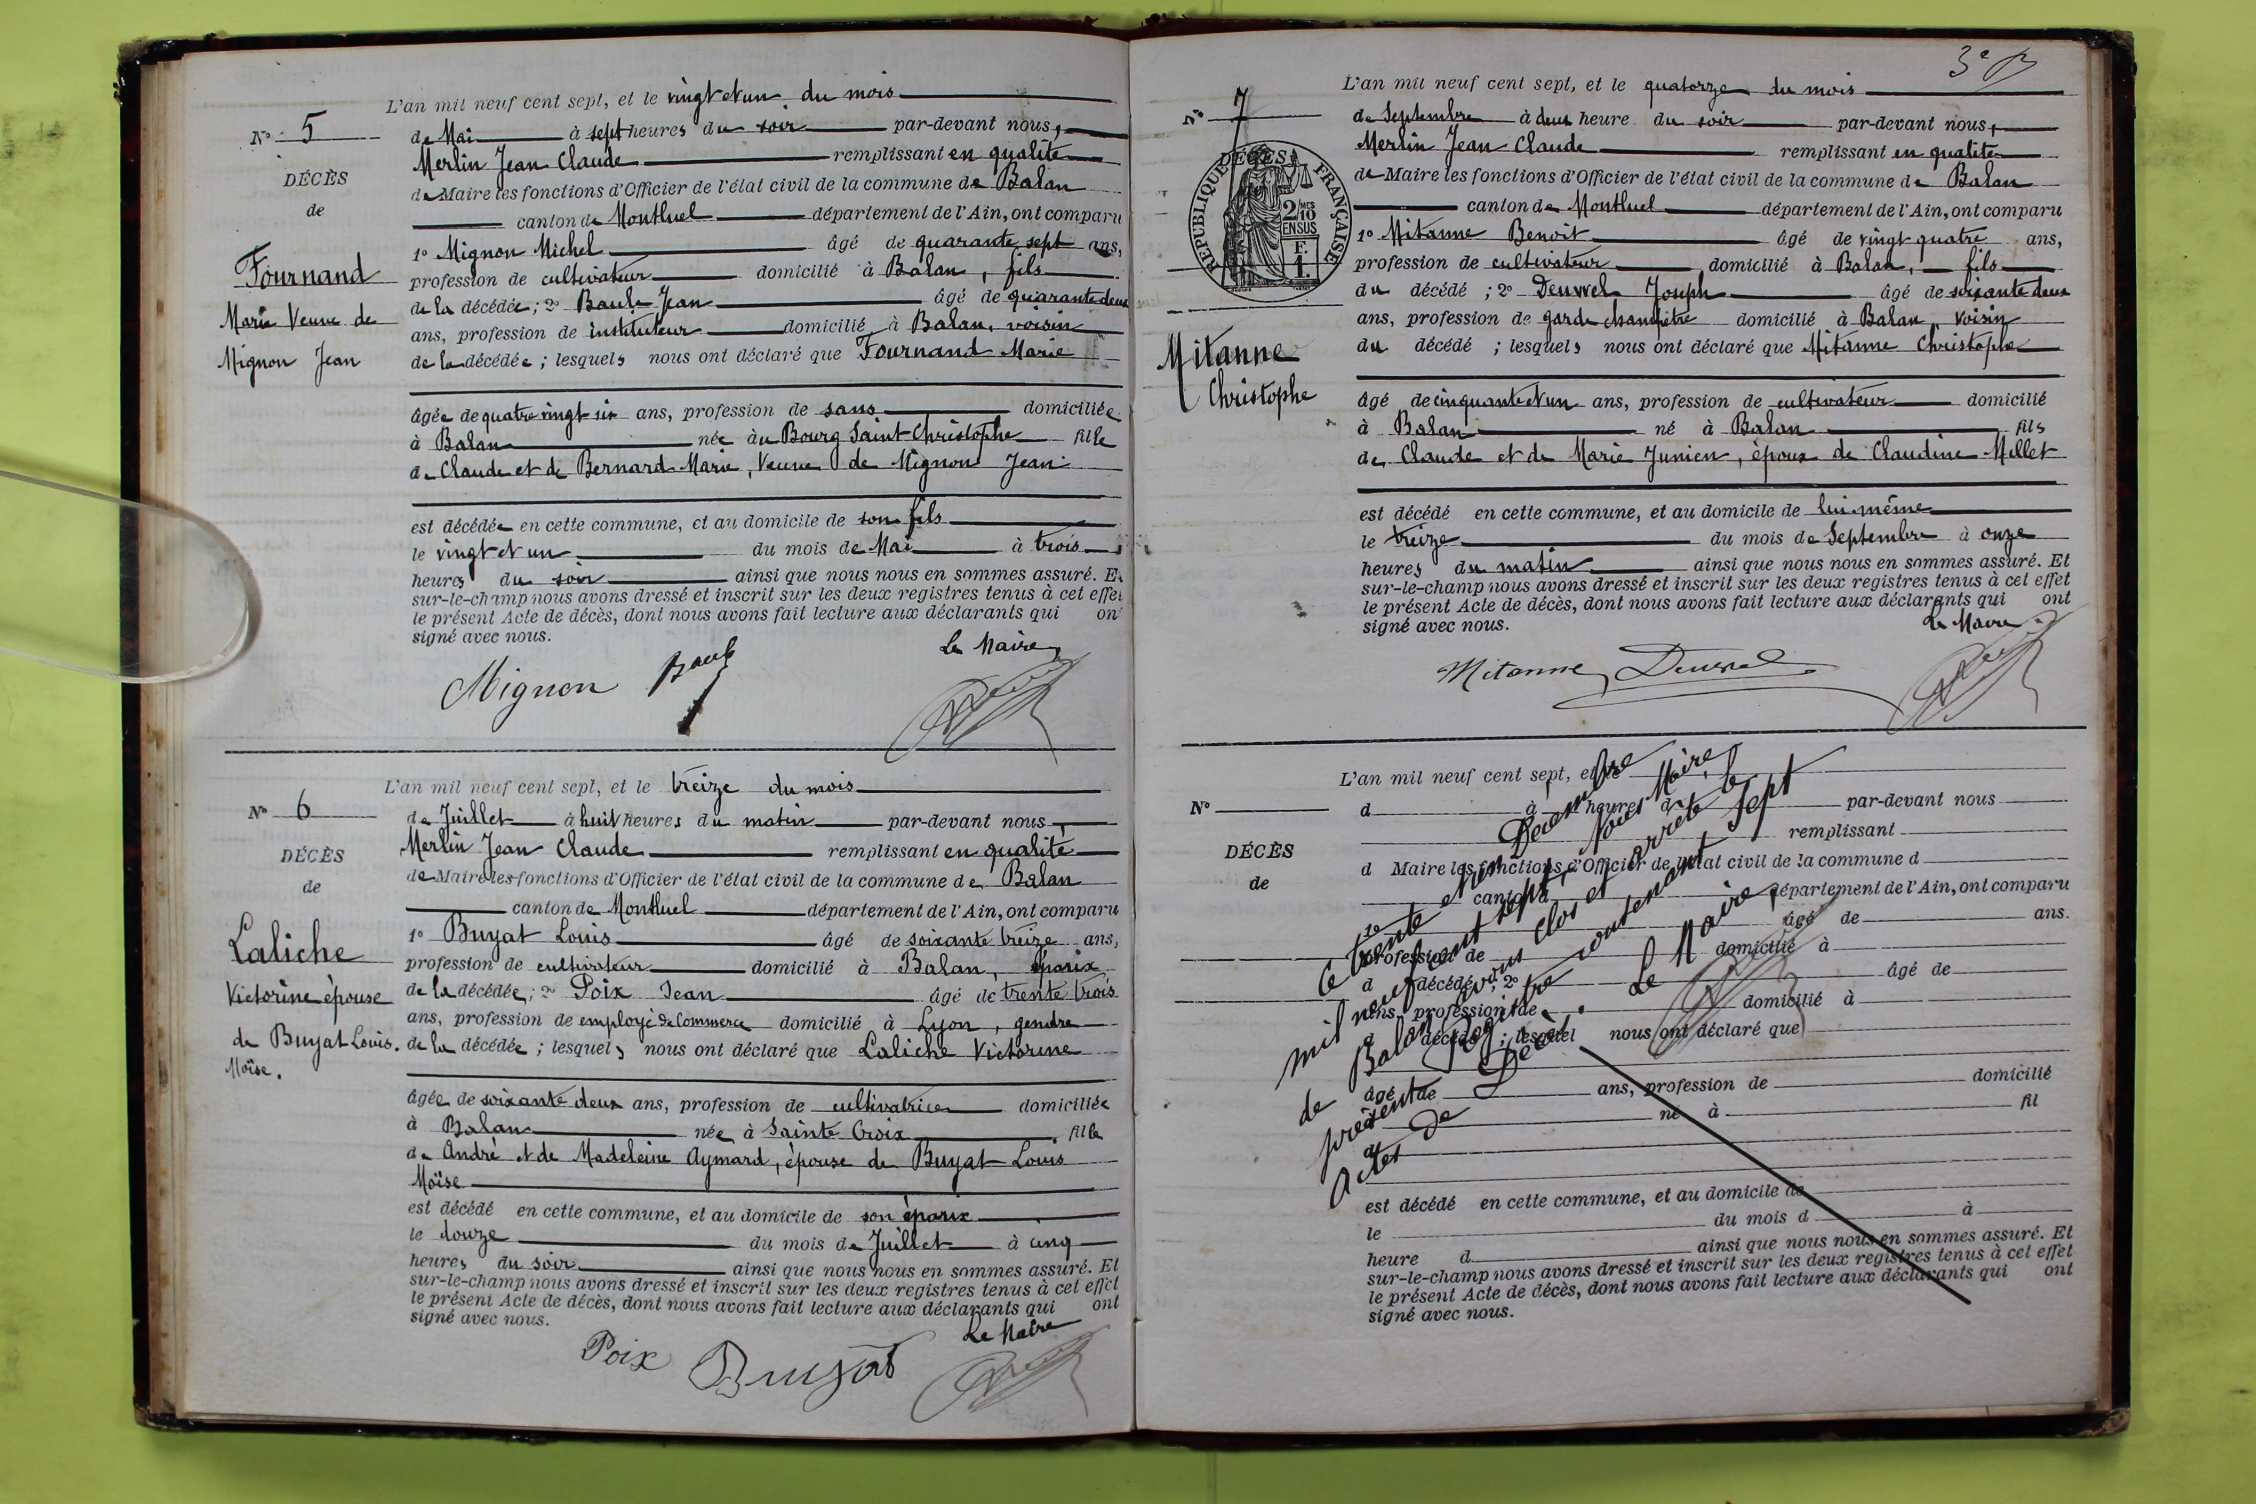 L'an mil neuf cent sept, et le vingt et un du mois
N° 5
de Mai à sept heures du soir par-devant nous,
Merlin Jean Claude remplissant en qualité
DÉCÈS
de Maire les fonctions d'Officier de l'état civil de la commune de Balan
de
canton de Montluel département de l'Ain, ont comparu
1° Mignon Michel âgé de quarante sept ans,
Fournand
profession de cultivateur domicilié à Balan, fils
de la décédée; 2° Baule Jean âgé de quarante deux
Marie Veuve de
ans, profession de instituteur domicilié à Balan, voisin
Mignon Jean
de la décédée; lesquels nous ont déclaré que Fournand Marie
âgée de quatre vingt six ans, profession de sans domiciliée
à Balan née à u Bourg Saint-Christophe fille
de Claude et de Bernard Marie, Veuve de Mignon Jean
est décédée en cette commune, et au domicile de son fils
le vingt et un du mois de Mai à trois
heures du soir ainsi que nous nous en sommes assuré. Et
sur-le-champ nous avons dressé et inscrit sur les deux registres tenus à cet effet
le présent Acte de décès, dont nous avons fait lecture aux déclarants qui ont
signé avec nous.
Le Maire,
Mignon Baule
L'an mil neuf cent sept, et le treize du mois
N° 6
de Juillet à huit heures du matin par-devant nous,
Merlin Jean Claude remplissant en qualité
DÉCÈS
de Maire les fonctions d'Officier de l'état civil de la commune de Balan
de
canton de Montluel département de l'Ain, ont comparu
1° Buyat Louis âgé de soixante treize ans,
Laliche
profession de cultivateur domicilié à Balan, époux
Victorine épouse
de la décédée; 2° Poix Jean âgé de trente trois
ans, profession de employé de Commerce domicilié à Lyon, gendre
de Buyat Louis.
de la décédée; lesquels nous ont déclaré que Laliche Victorine
Moïse.
âgée de soixante deux ans, profession de cultivatrice domiciliée
à Balan née à Sainte Croix fille
de André et de Madeleine Aymard, épouse de Buyat Louis
Moïse
est décédé en cette commune, et au domicile de son époux
le douze du mois de Juillet à cinq
heures du soir ainsi que nous nous en sommes assuré. Et
sur-le-champ nous avons dressé et inscrit sur les deux registres tenus à cet effet
le présent Acte de décès, dont nous avons fait lecture aux déclarants qui ont
signé avec nous.
Le Maire
Poix Buyat
3e
L'an mil neuf cent sept, et le quatorze du mois
N° 7
de Septembre à deux heure du soir par-devant nous,
Merlin Jean Claude remplissant en qualité
DÉCÈS
RÉPUBLIQUE FRANÇAISE
2/10 MES
EN SUS
F.
1.
de Maire les fonctions d'Officier de l'état civil de la commune de Balan
canton de Montluel département de l'Ain, ont comparu
1° Mitanne Benoit âgé de vingt quatre ans,
profession de cultivateur domicilié à Balan, fils
du décédé; 2° Deuvrel Joseph âgé de soixante deux
ans, profession de garde champêtre domicilié à Balan, voisin
du décédé; lesquels nous ont déclaré que Mitanne Christophe
Mitanne
Christophe
âgé de cinquante et un ans, profession de cultivateur domicilié
à Balan né à Balan fils
de Claude et de Marie Junien, époux de Claudine Millet
est décédé en cette commune, et au domicile de lui-même
le treize du mois de Septembre à onze
heures du matin ainsi que nous nous en sommes assuré. Et
sur-le-champ nous avons dressé et inscrit sur les deux registres tenus à cet effet
le présent Acte de décès, dont nous avons fait lecture aux déclarants qui ont
signé avec nous.
Le Maire
Mitanne Deuvrel
L'an mil neuf cent sept, et le
N°
d à heures d par-devant nous
remplissant
DÉCÈS
d Maire les fonctions d'Officier de l'état civil de la commune d
de
canton d département de l'Ain, ont comparu
1° âgé de ans.
profession de domicilié à
d décédé; 2° âgé de
ans, profession de domicilié à
d décédé; lesquel nous ont déclaré que
âgé de ans, profession de domicilié
à né à fil
d
est décédé en cette commune, et au domicile de
le du mois d à
heure d ainsi que nous nous en sommes assuré. Et
sur-le-champ nous avons dressé et inscrit sur les deux registres tenus à cet effet
le présent Acte de décès, dont nous avons fait lecture aux déclarants qui ont
signé avec nous.
Ce trente et un Décembre
mil neuf cent sept, Nous Maire,
de Balan avons clos et arrêté le
présent Registre contenant sept
actes de Décès.
Le Maire,